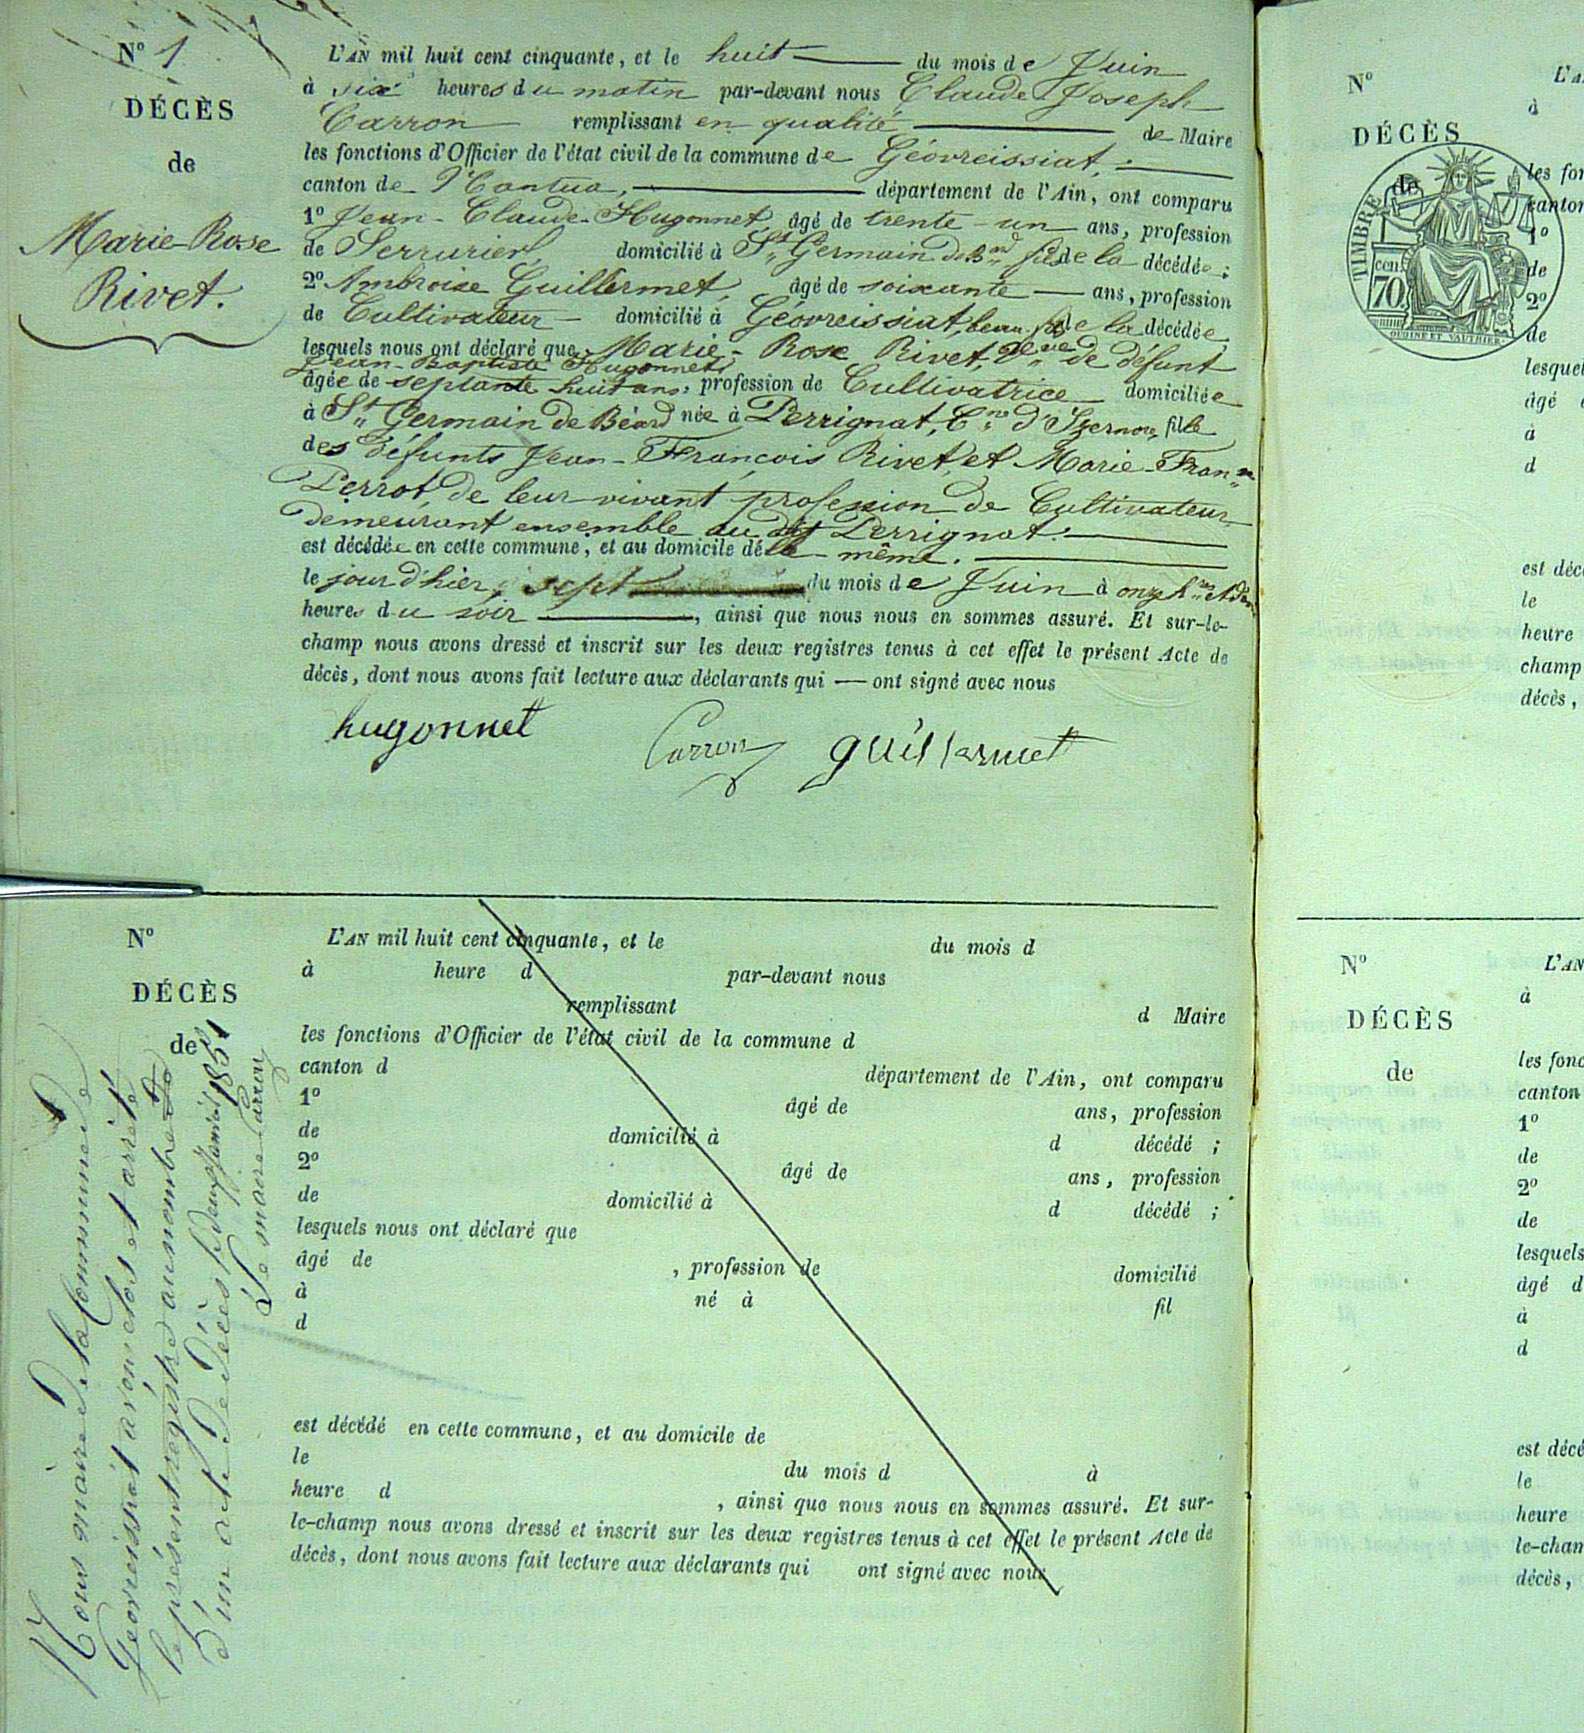 N° 1
DÉCÈS
de
Marie-Rose
Rivet.
L'AN mil huit cent cinquante, et le huit du mois de Juin
à six heures du matin par-devant nous Claude Joseph
Carron remplissant en qualité de Maire
les fonctions d'Officier de l'état civil de la commune de Géovreissiat,
canton de Nantua, département de l'Ain, ont comparu
1° Jean-Claude Hugonnet âgé de trente-un ans, profession
de Serrurier, domicilié à St Germain de Bard fils de la décédée ;
2° Ambroise Guillermet, âgé de soixante ans, profession
de Cultivateur domicilié à Géovreissiat, beau-fils de la décédée
lesquels nous ont déclaré que Marie-Rose Rivet, veuve de défunt
Jean-Baptiste Hugonnet
âgée de septante huit ans, profession de Cultivatrice domiciliée
à St Germain de Béard née à Perrignat, Cne d'Izernore, fille
des défunts Jean-François Rivet, et Marie-Fran
Perrot, de leur vivant profession de Cultivateur
demeurant ensemble au dit Perrignat.
est décédée en cette commune, et au domicile de le même.
le jour d'hier, sept du mois de Juin à onze hres
heures du soir, ainsi que nous nous en sommes assuré. Et sur-le-
champ nous avons dressé et inscrit sur les deux registres tenus à cet effet le présent Acte de
décès, dont nous avons fait lecture aux déclarants qui — ont signé avec nous
hugonnet Carron guillermet
N°
DÉCÈS
de
L'AN mil huit cent cinquante, et le du mois d
à heure d par-devant nous
remplissant d Maire
les fonctions d'Officier de l'état civil de la commune d
canton d département de l'Ain, ont comparu
1° âgé de ans, profession
de domicilié à d décédé ;
2° âgé de ans, profession
de domicilié à d décédé ;
lesquels nous ont déclaré que
âgé de , profession de domicilié
à né à fil
d
est décédé en cette commune, et au domicile de
le du mois d à
heure d , ainsi que nous nous en sommes assuré. Et sur-
le-champ nous avons dressé et inscrit sur les deux registres tenus à cet effet le présent Acte de
décès, dont nous avons fait lecture aux déclarants qui ont signé avec nous
Nous maire de la Commune de
Geovreissiat avons clos et arrêté
le présent registre au nombre
d'un acte de décès le deux janvier 1851
Le maire Carron
N°
DÉCÈS
de
TIMBRE
cen.
70
OUDINE ET VAUTHIER
L'A
à
les fon
canton
1°
de
2°
de
lesquel
âgé
à
d
est déc
le
heure
champ
décès,
N°
DÉCÈS
de
L'AN
à
les fonc
canton
1°
de
2°
de
lesquels
âgé d
à
d
est décé
le
heure
le-cham
décès,